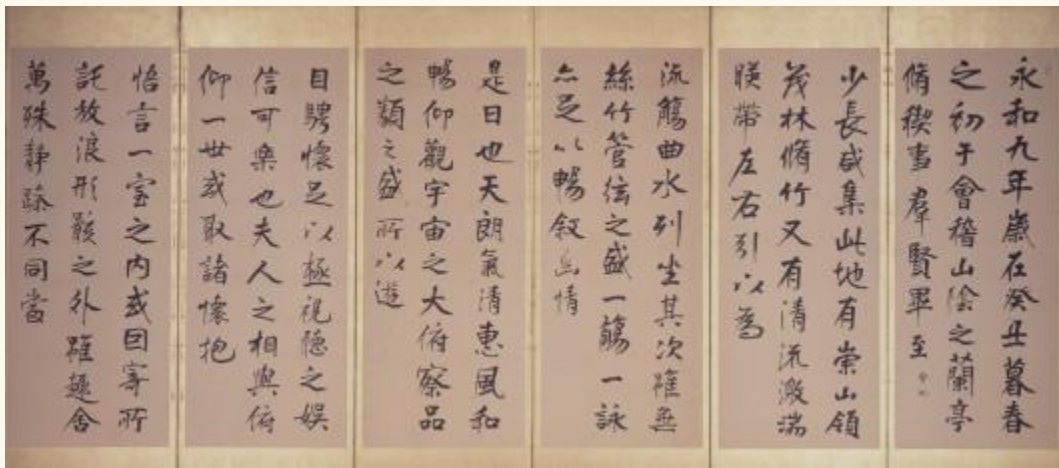 永和九年歲在癸丑暮春
之初于會稽山陰之蘭亭
脩稧事羣賢畢至
少長咸集此地有崇山領
茂林脩竹又有清流激湍
暎帶左右引以為
流觴曲水列坐其次雖無
絲竹管絃之盛一觴一詠
亦足以暢敘幽情
是日也天朗氣清惠風和
暢仰觀宇宙之大俯察品
之類之盛所以遊
目騁懷足以極視聽之娛
信可樂也夫人之相與俯
仰一世或取諸懷抱
悟言一室之內或因寄所
託放浪形骸之外雖趣舍
萬殊靜躁不同當